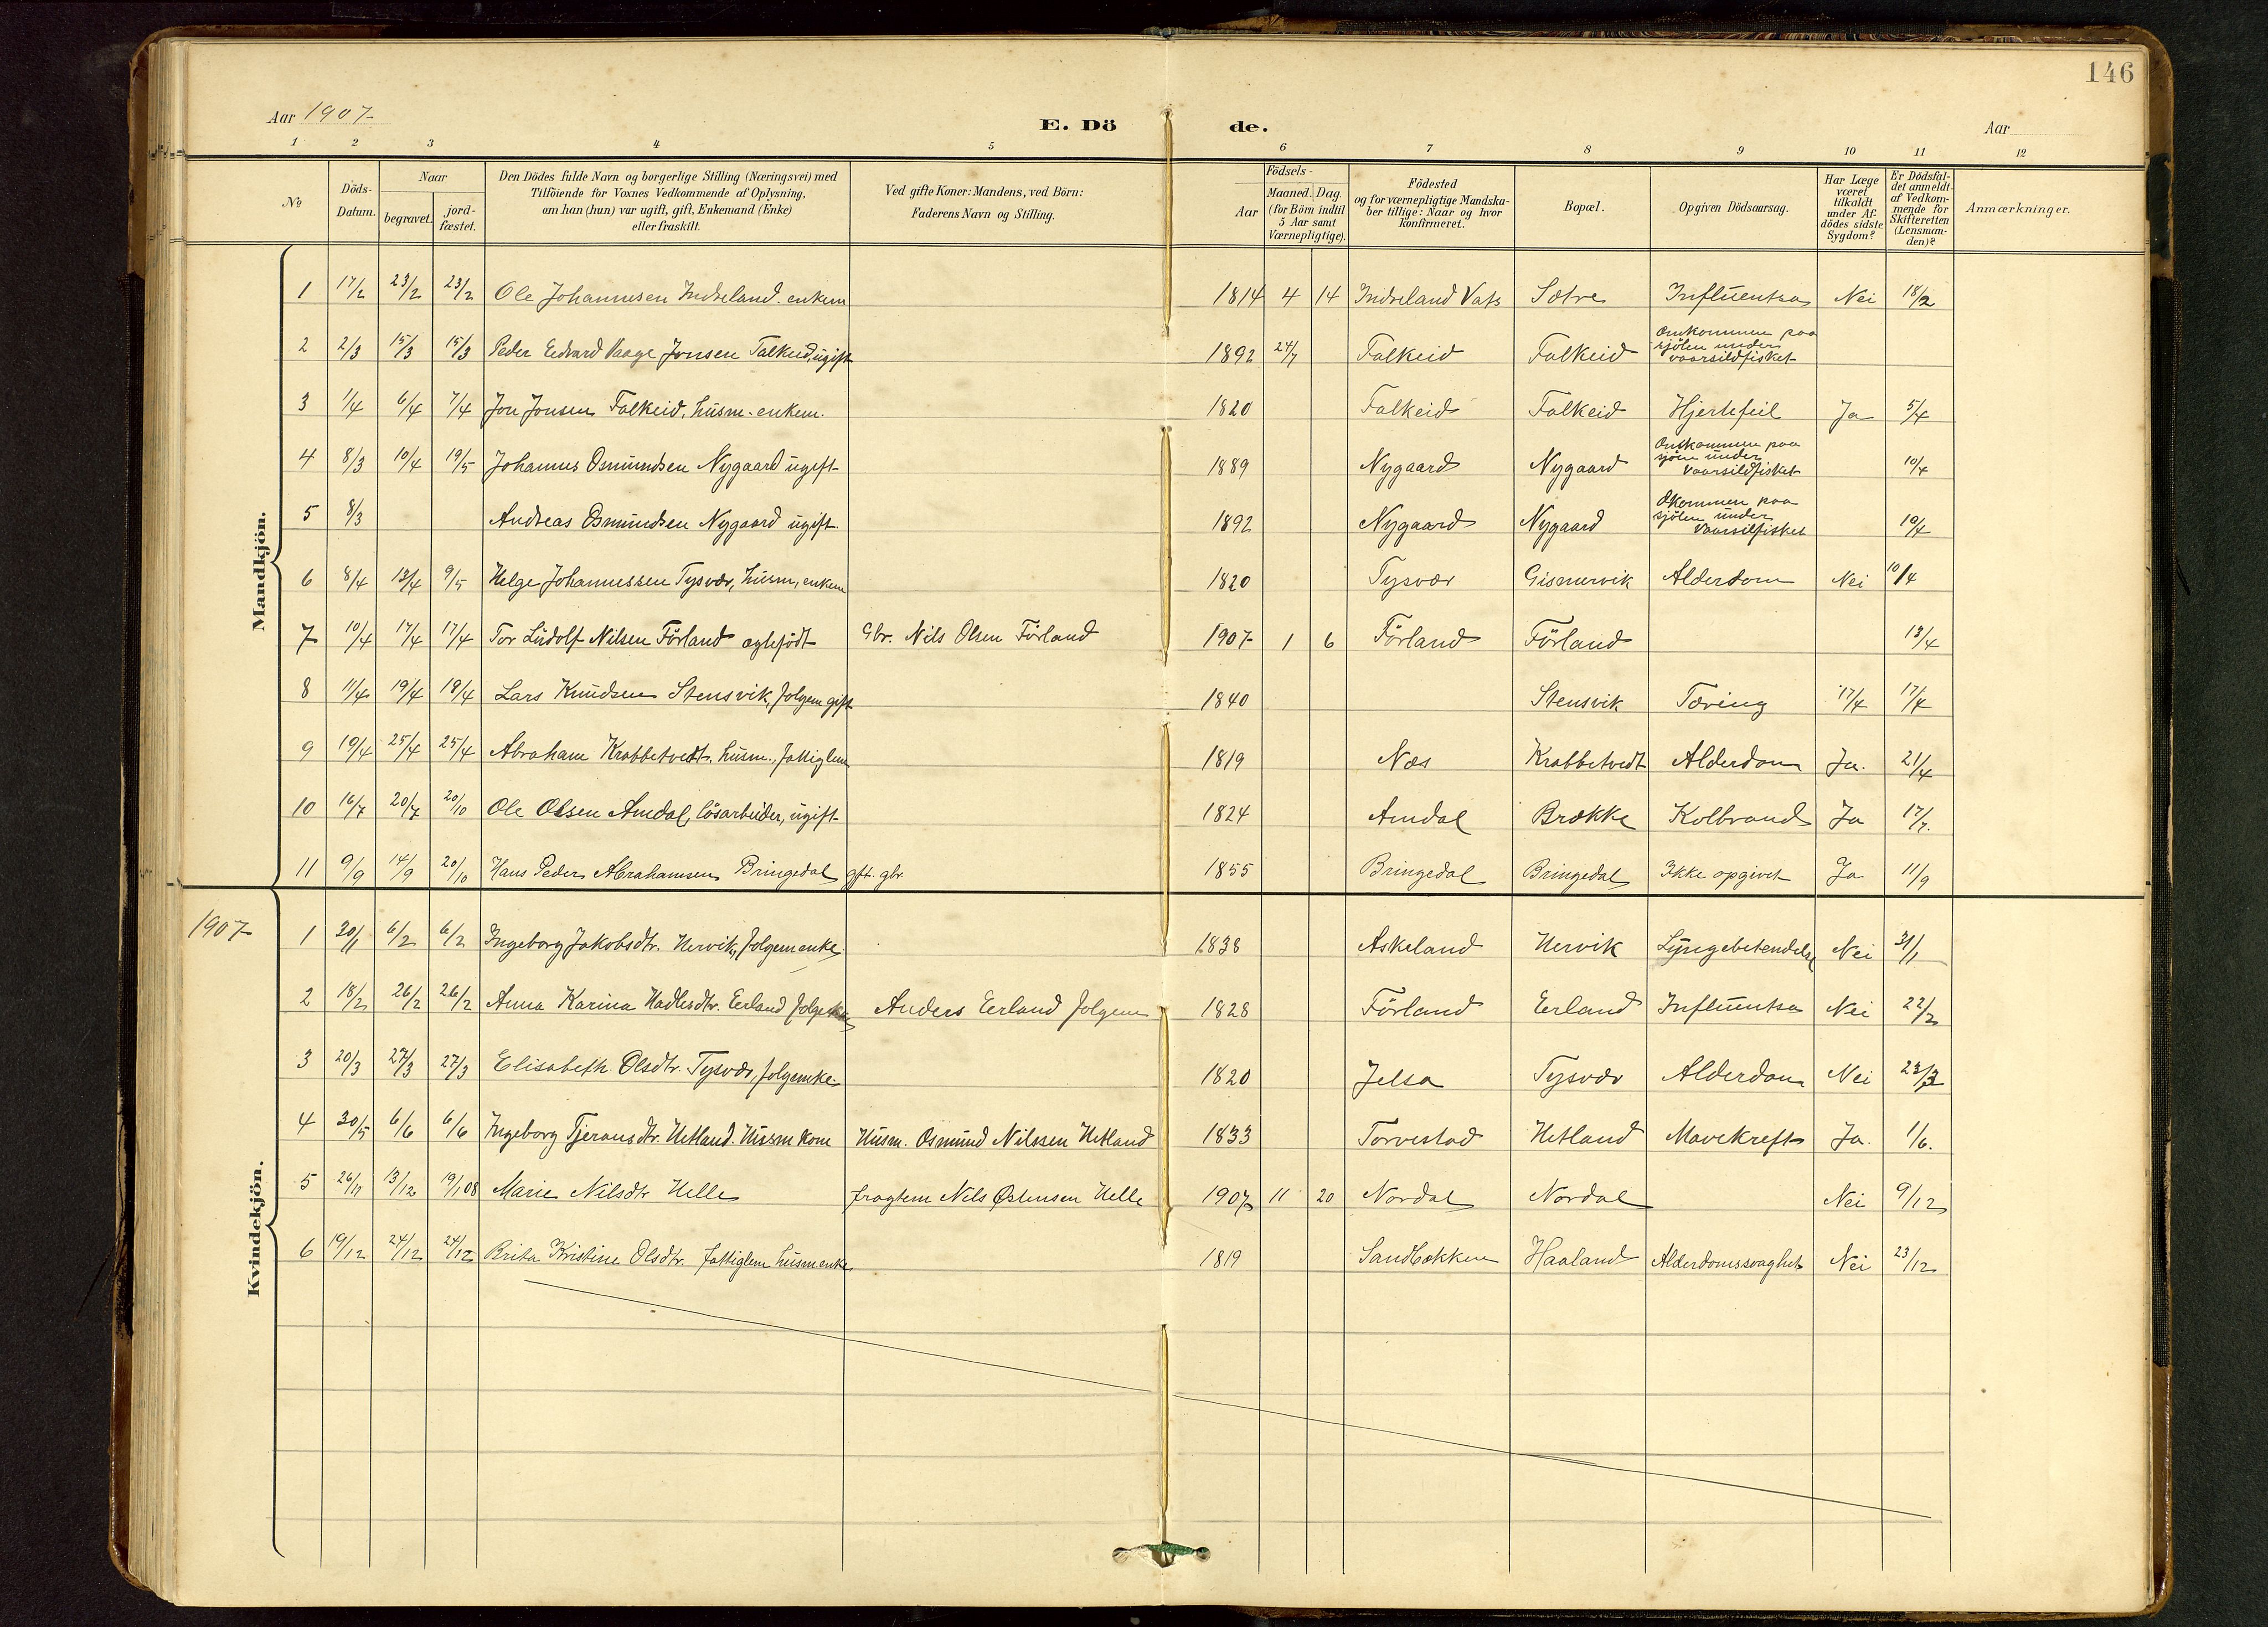 146
Aar 1907
E. Dö de.
Aar
1 2 3 4 5 6 7 8 9 10 11 12
No
Döds-Datum.
Naar
begravet.
jord-fæstet.
Den Dödes fulde Navn og borgerlige Stilling (Næringsvei) med
Tilföiende for Voxnes Vedkommende af Oplysning,
om han (hun) var ugift, gift, Enkemand (Enke)
eller fraskilt.
Ved gifte Koner: Mandens, ved Börn:
Faderens Navn og Stilling.
Födsels-
Aar
Maaned. Dag.
(for Börn indtil
5 Aar samt
Værnepligtige).
Födested
og for værnepligtige Mandska-
ber tillige: Naar og hvor
konfirmeret.
Bopæl.
Opgiven Dödsaarsag.
Har Læge
været
tilkaldt
under Af-
dödes sidste
Sygdom?
Er Dödsfal-
det anmeldt
af Vedkom-
mende for
Skifteretten
(Lensman-
den)?
Anmærkninger.
Mandkjön.
1 17/2 23/2 23/2 Ole Johannesen Indreland. enkem 1814 4 14 Indreland Vats Sætre Influentsa Nei 18/2
2 2/3 15/3 15/3 Peder Edvard Vaage Jonsen Falkeid, ugift 1892 24/7 Falkeid Falkeid Omkommen paa sjölen under vaarsildfisket
3 1/4 6/4 7/4 Jon Jonsen Falkeid, husm. enkem. 1820 Falkeid Falkeid Hjertefeil Ja 5/4
4 8/3 10/4 19/5 Johannes Osmundsen Nygaard ugift 1889 Nygaard Nygaard Omkommen paa sjöen under vaarsildfisket 10/4
5 8/3 Andreas Osmundsen Nygaard ugift. 1892 Nygaard Nygaard Okommen paa sjölen under vaarsilfisket 10/4
6 8/4 13/4 9/5 Helge Johannessen Tysvær, husm, enkem 1820 Tysvær Gismervik Alderdom Nei 10/4
7 10/4 17/4 17/4 Tor Ludolf Nilsen Förland ægtefödt Gbr. Nils Olsen Förland 1907 1 6 Förland Förland 13/4
8 11/4 19/4 19/4 Lars Knudsen Stensvik, folgem gift 1840 Stensvik Tæring 17/4 17/4
9 19/4 25/4 25/4 Abraham Krabbetvedt, husm., fattiglem 1819 Næs Krabbetvedt Alderdom Ja. 21/4
10 16/7 20/7 20/10 Ole Olsen Amdal, lösarbeider, ugift 1824 Amdal Brække Kolbrand Ja 17/7.
11 9/9 14/9 20/10 Hans Peder Abrahamsen Bringedal gft. gbr. 1855 Bringedal Bringedal Ikke opgivet Ja 11/9
1907
Kvindekjön.
1 30/1 6/2 6/2 Ingeborg Jakobsdtr. Hervik, folgemenke. 1838 Askeland Hervik Lungebetendelse Nei 31/1
2 18/2 26/2 26/2 Anna Karina Hadlesdtr. Eerland Anders Eerland folgem 1828 Förland Eerland Influentsa Nei 22/2
3 20/3 27/3 27/3 Elisabeth. Olsdtr. Tysvær, folgemke. 1820 Jelsa Tysvær Alderdom Nei 23/3
4 30/5 6/6 6/6 Ingeborg Tjeransdtr. Hetland. Husm kone Husm. Osmund Nilssen Hetland 1833 Torvestad Hetland Mavekreft Ja. 1/6.
5 26/11 13/12 19/1 08 Marie Nilsdtr Helle fragtem Nils Østensen Helle 1907 11 20 Nordal Nordal Nei 9/12
6 19/12 24/12 24/12 Brita Kristine Olsdtr. fattiglem husmenke. 1819 Sandbækken Haaland Alderdomssvaghet Nei 23/12